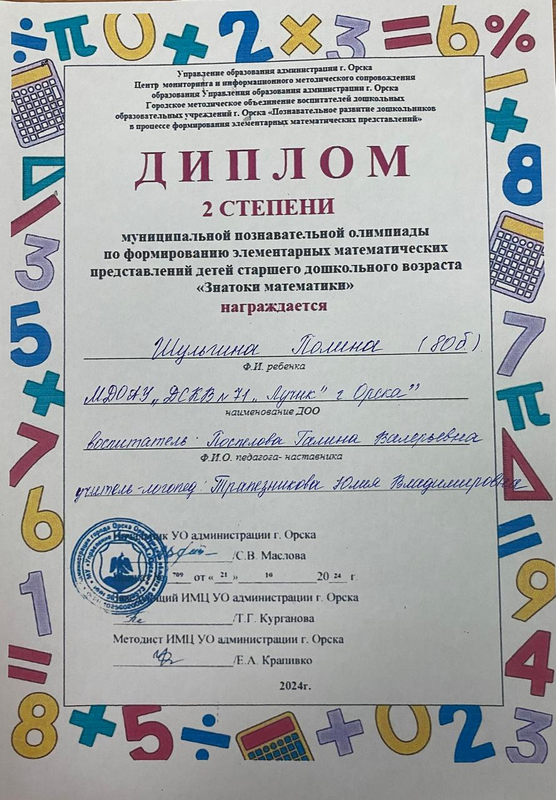 Управление образования администрации г. Орска
Центр мониторинга и информационного методического сопровождения
образования Управления образования администрации г. Орска
Городское методическое объединение воспитателей дошкольных
образовательных учреждений г. Орска «Познавательное развитие дошкольников
в процессе формирования элементарных математических представлений»
ДИПЛОМ
2 СТЕПЕНИ
муниципальной познавательной олимпиады
по формированию элементарных математических
представлений детей старшего дошкольного возраста
«Знатоки математики»
награждается
Шульгина Полина (80б)
Ф.И. ребенка
МДОАУ „ДСКВ №71 „Лучик" г Орска"
наименование ДОО
воспитатель: Поспелова Галина Валерьевна
Ф.И.О. педагога- наставника
учитель-логопед: Трапезникова Юлия Владимировна
УО администрации г. Орска
/С.В. Маслова
709 от «21» 10 2024 г
ИМЦ УО администрации г. Орска
/Т.Г. Курганова
Методист ИМЦ УО администрации г. Орска
/Е.А. Крапивко
2024г.